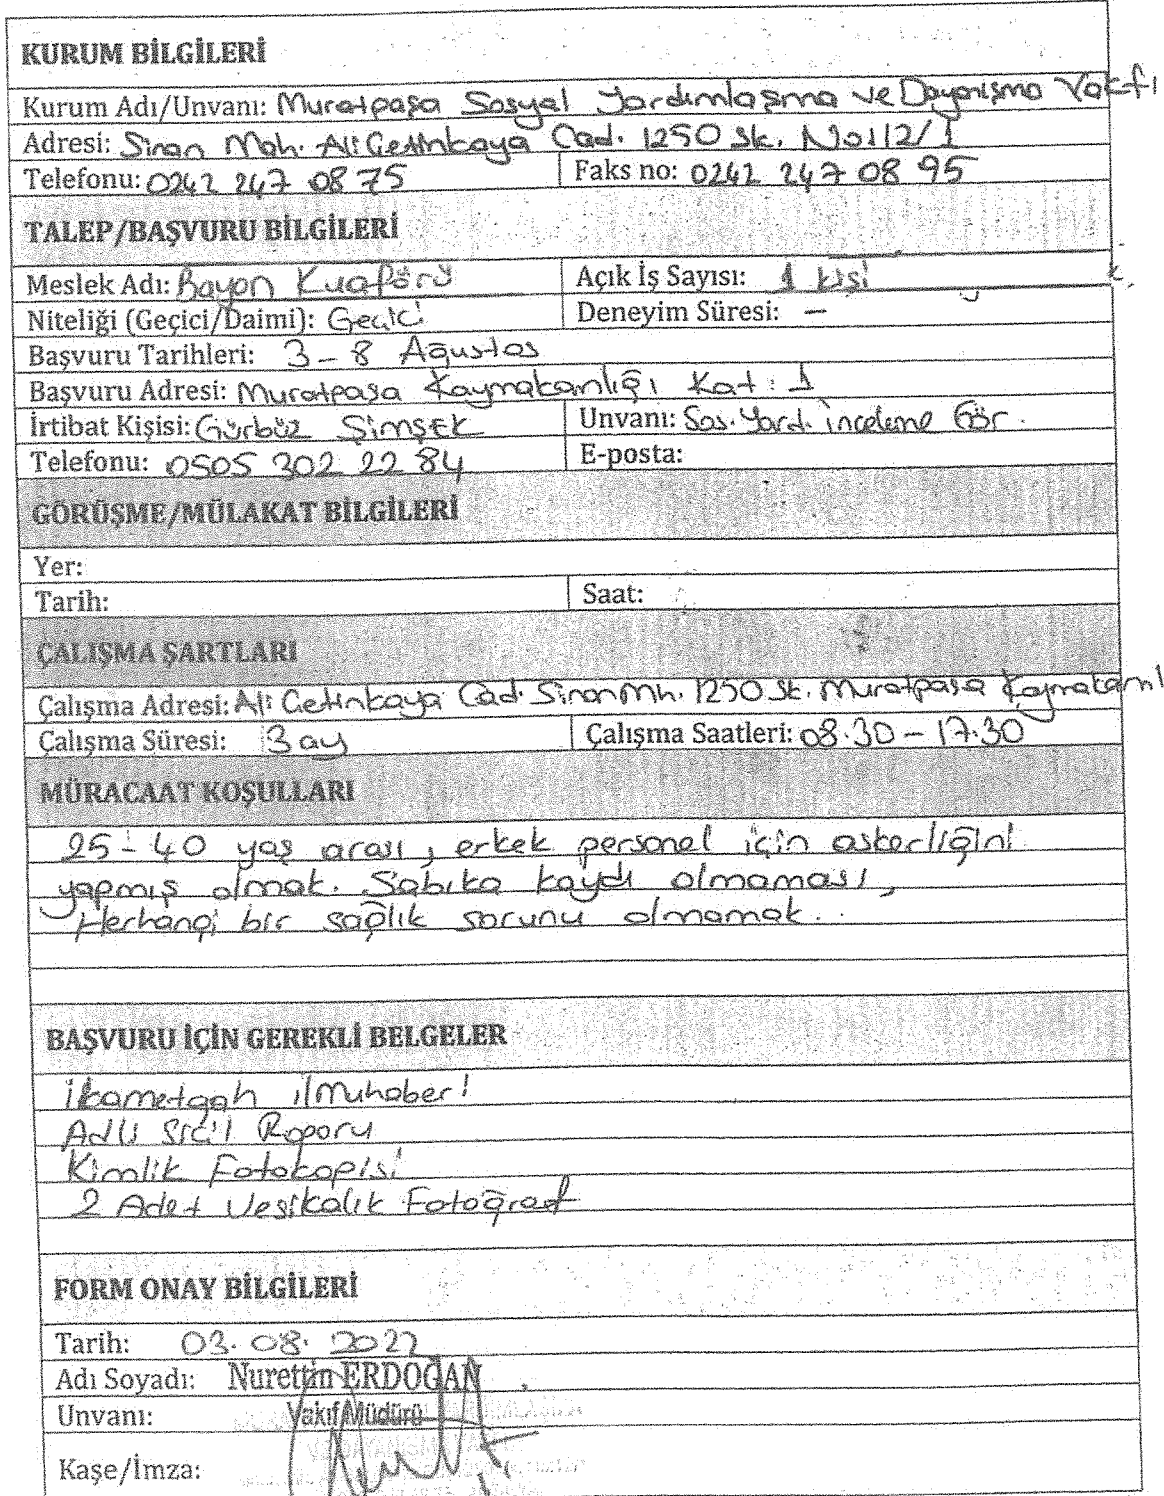 KURUM BİLGİLERİ
Kurum Adı/Unvanı: Muratpaşa Sosyal Yardımlaşma ve Dayanışma Vakfı
Adresi: Sinan Mah. Ali Çetinkaya Cad. 1250 Sk. No:12/1
Telefonu: 0242 247 08 75 Faks no: 0242 247 08 95
TALEP/BAŞVURU BİLGİLERİ
Meslek Adı: Bayan Kuaförü Açık İş Sayısı: 1 kişi
Niteliği (Geçici/Daimi): Geçici Deneyim Süresi: –
Başvuru Tarihleri: 3 – 8 Ağustos
Başvuru Adresi: Muratpaşa Kaymakamlığı Kat: 1
İrtibat Kişisi: Gürbüz ŞİMŞEK Unvanı: Sos. Yard. İnceleme Gör.
Telefonu: 0505 302 22 84 E-posta:
GÖRÜŞME/MÜLAKAT BİLGİLERİ
Yer:
Tarih: Saat:
ÇALIŞMA ŞARTLARI
Çalışma Adresi: Ali Çetinkaya Cad. Sinan Mh. 1250 Sk. Muratpaşa Kaymakaml
Çalışma Süresi: 3 ay Çalışma Saatleri: 08.30 – 17.30
MÜRACAAT KOŞULLARI
25 – 40 yaş arası, erkek personel için askerliğini
yapmış olmak. Sabıka kaydı olmaması,
Herhangi bir sağlık sorunu olmamak.
BAŞVURU İÇİN GEREKLİ BELGELER
İkametgah ilmuhaberi
Adli Sicil Raporu
Kimlik Fotokopisi
2 Adet Vesikalık Fotoğraf
FORM ONAY BİLGİLERİ
Tarih: 03.08.2022
Adı Soyadı: Nurettin ERDOĞAN
Unvanı: Vakıf Müdürü
Kaşe/İmza: